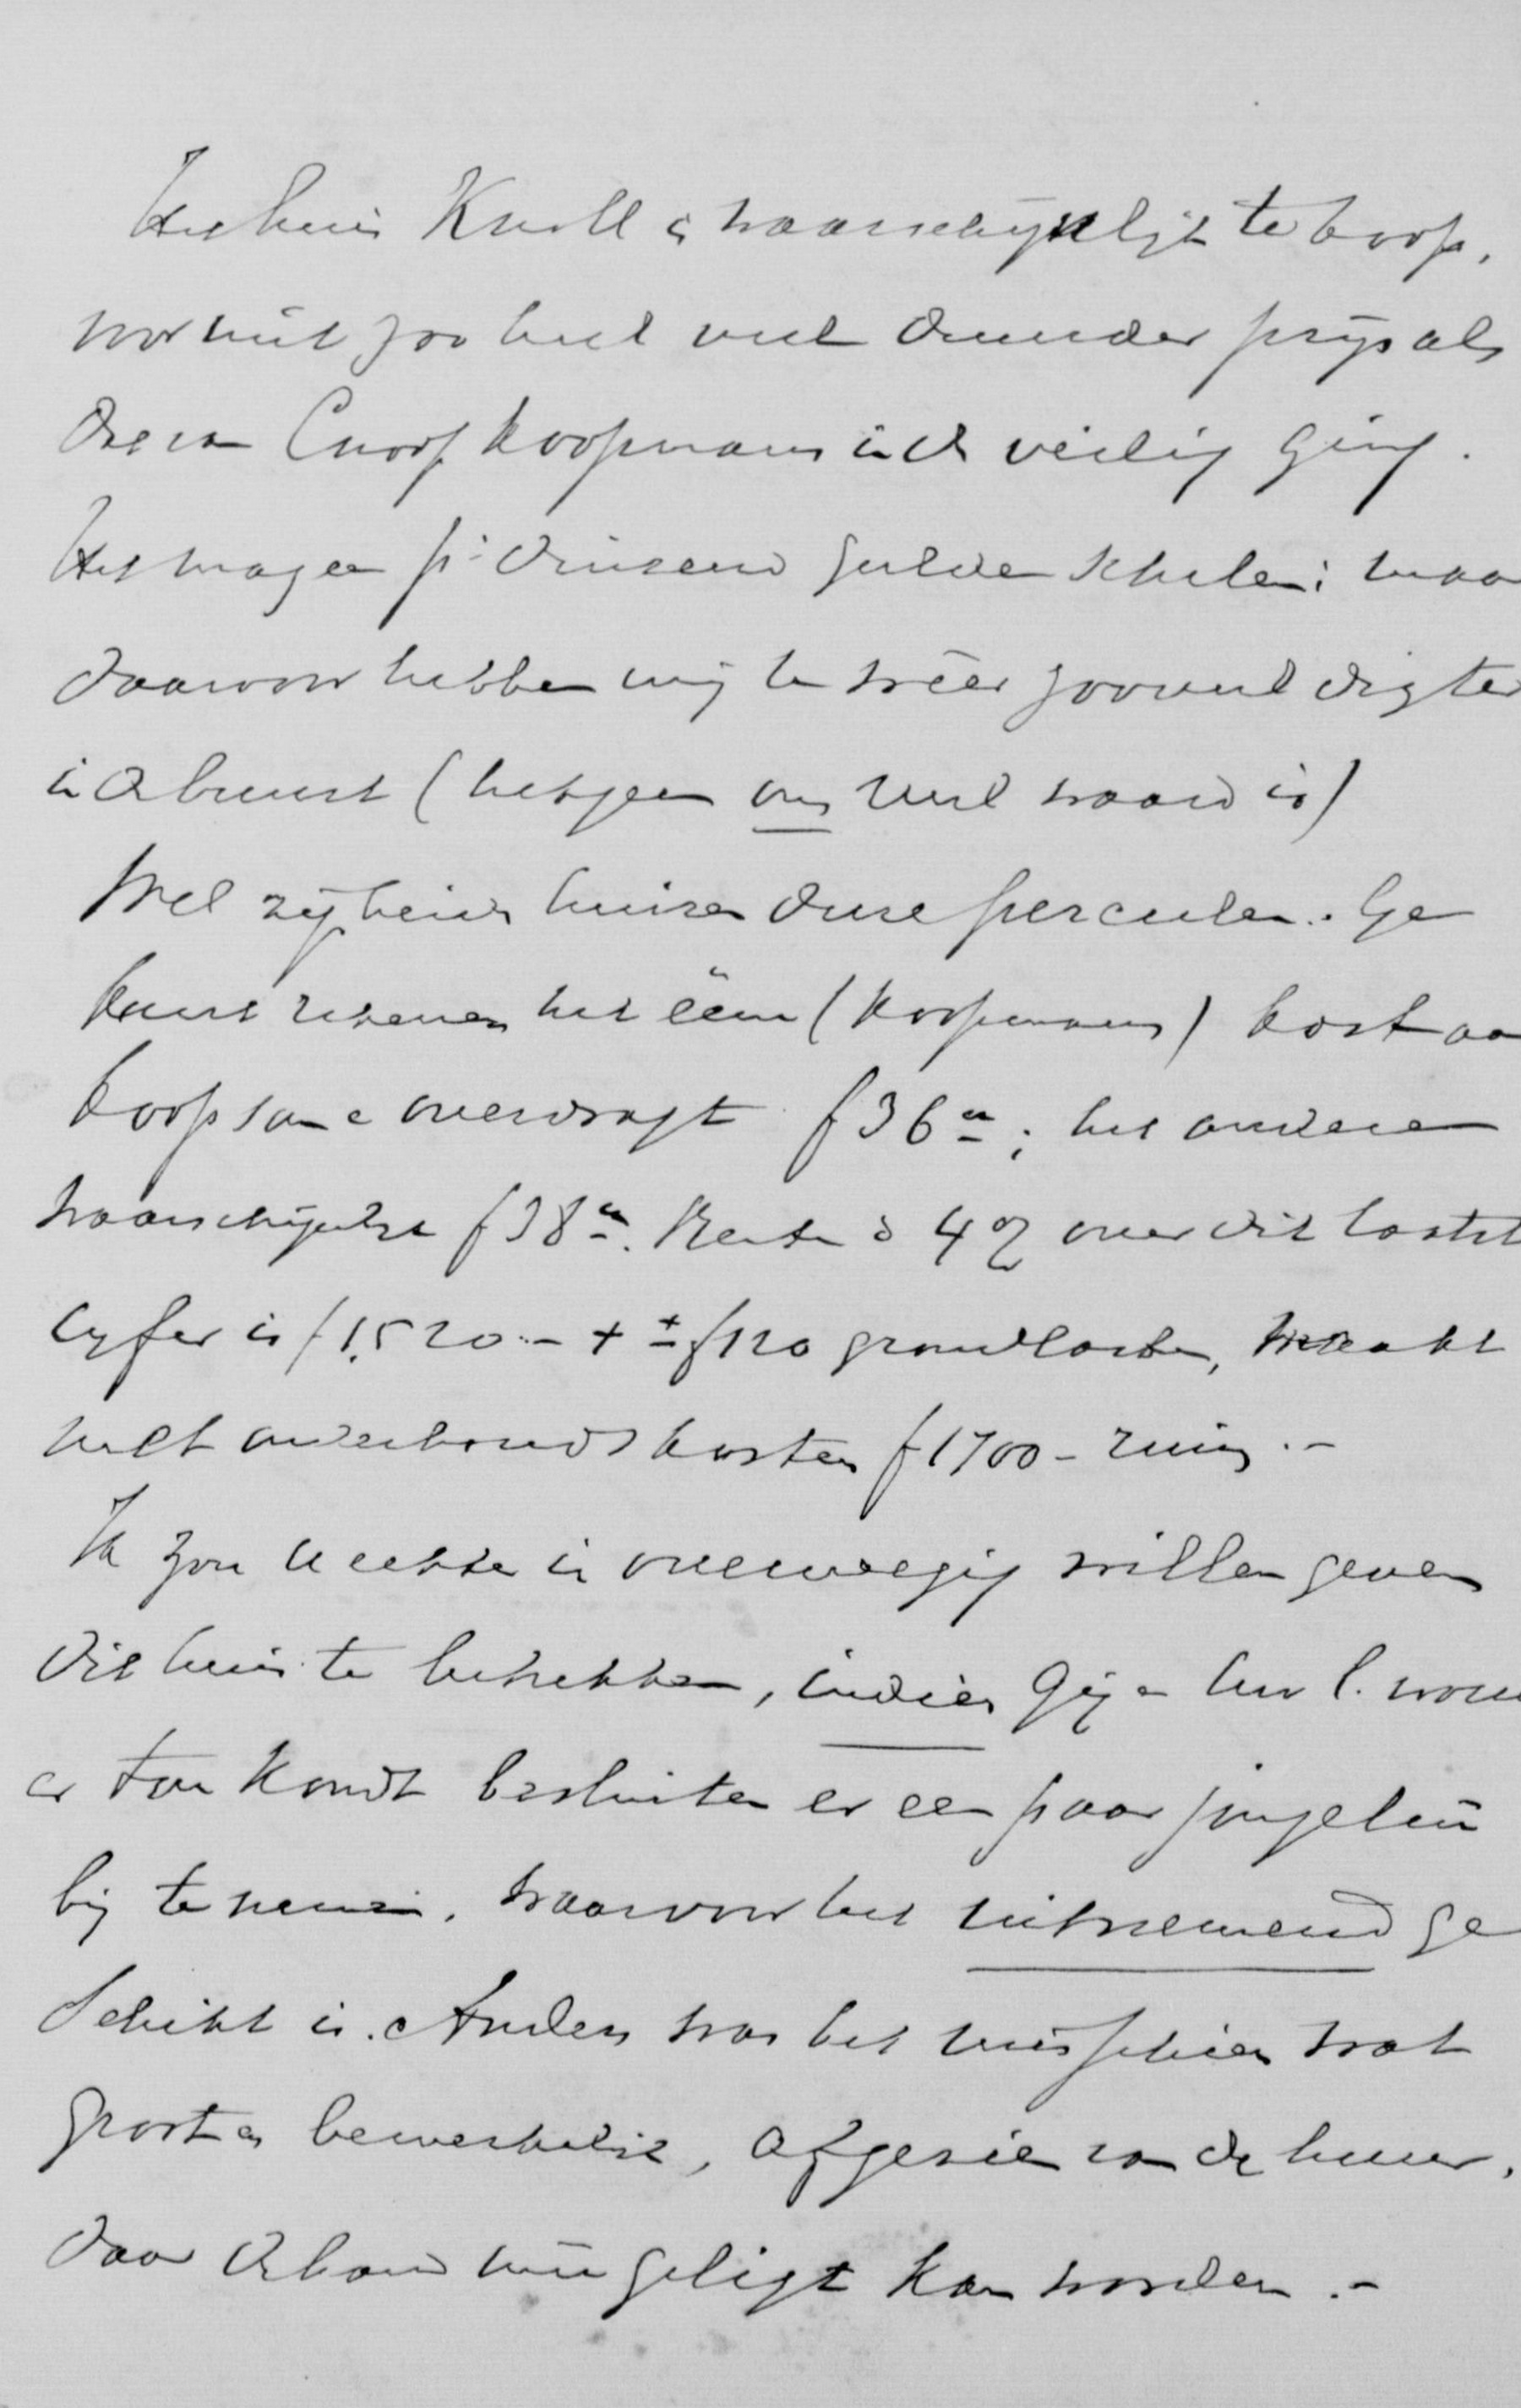 Het huis Knoll is waarschijnlijk te koop,
wel niet zoo heel veel minder prijs als
die van Cnoop Koopmans in de veiling ging.
Het mag een pr duizend gulden schelen: maar
daarvoor hebben wij te meer zooveel digter
in de buurt (hetgeen ons veel waard is)
Wel zijn beide huizen dure perceelen. Ge
kunt rekenen het ééne (Koopmans) kost aan
koopsom & overdragt f 36m; het andere
waarschijnlijk f 38m. Rente à 4% over dit laatste
cyfer is f 1520.- + ± f 120 grondlasten, maakt
met onderhoudskosten f 1700 - ruim.-
Ik zou U echter in overweging willen geven
dit huis te betrekken, indien Gij & Uw l. vrouw
er toe kondt besluiten er een paar jongelui
bij te nemen, waarvoor het uitnemend ge
schikt is. Anders was het misschien wat
groot en bewerkelijk, afgezien van de huur,
daar de hand mee geligt kan worden.-